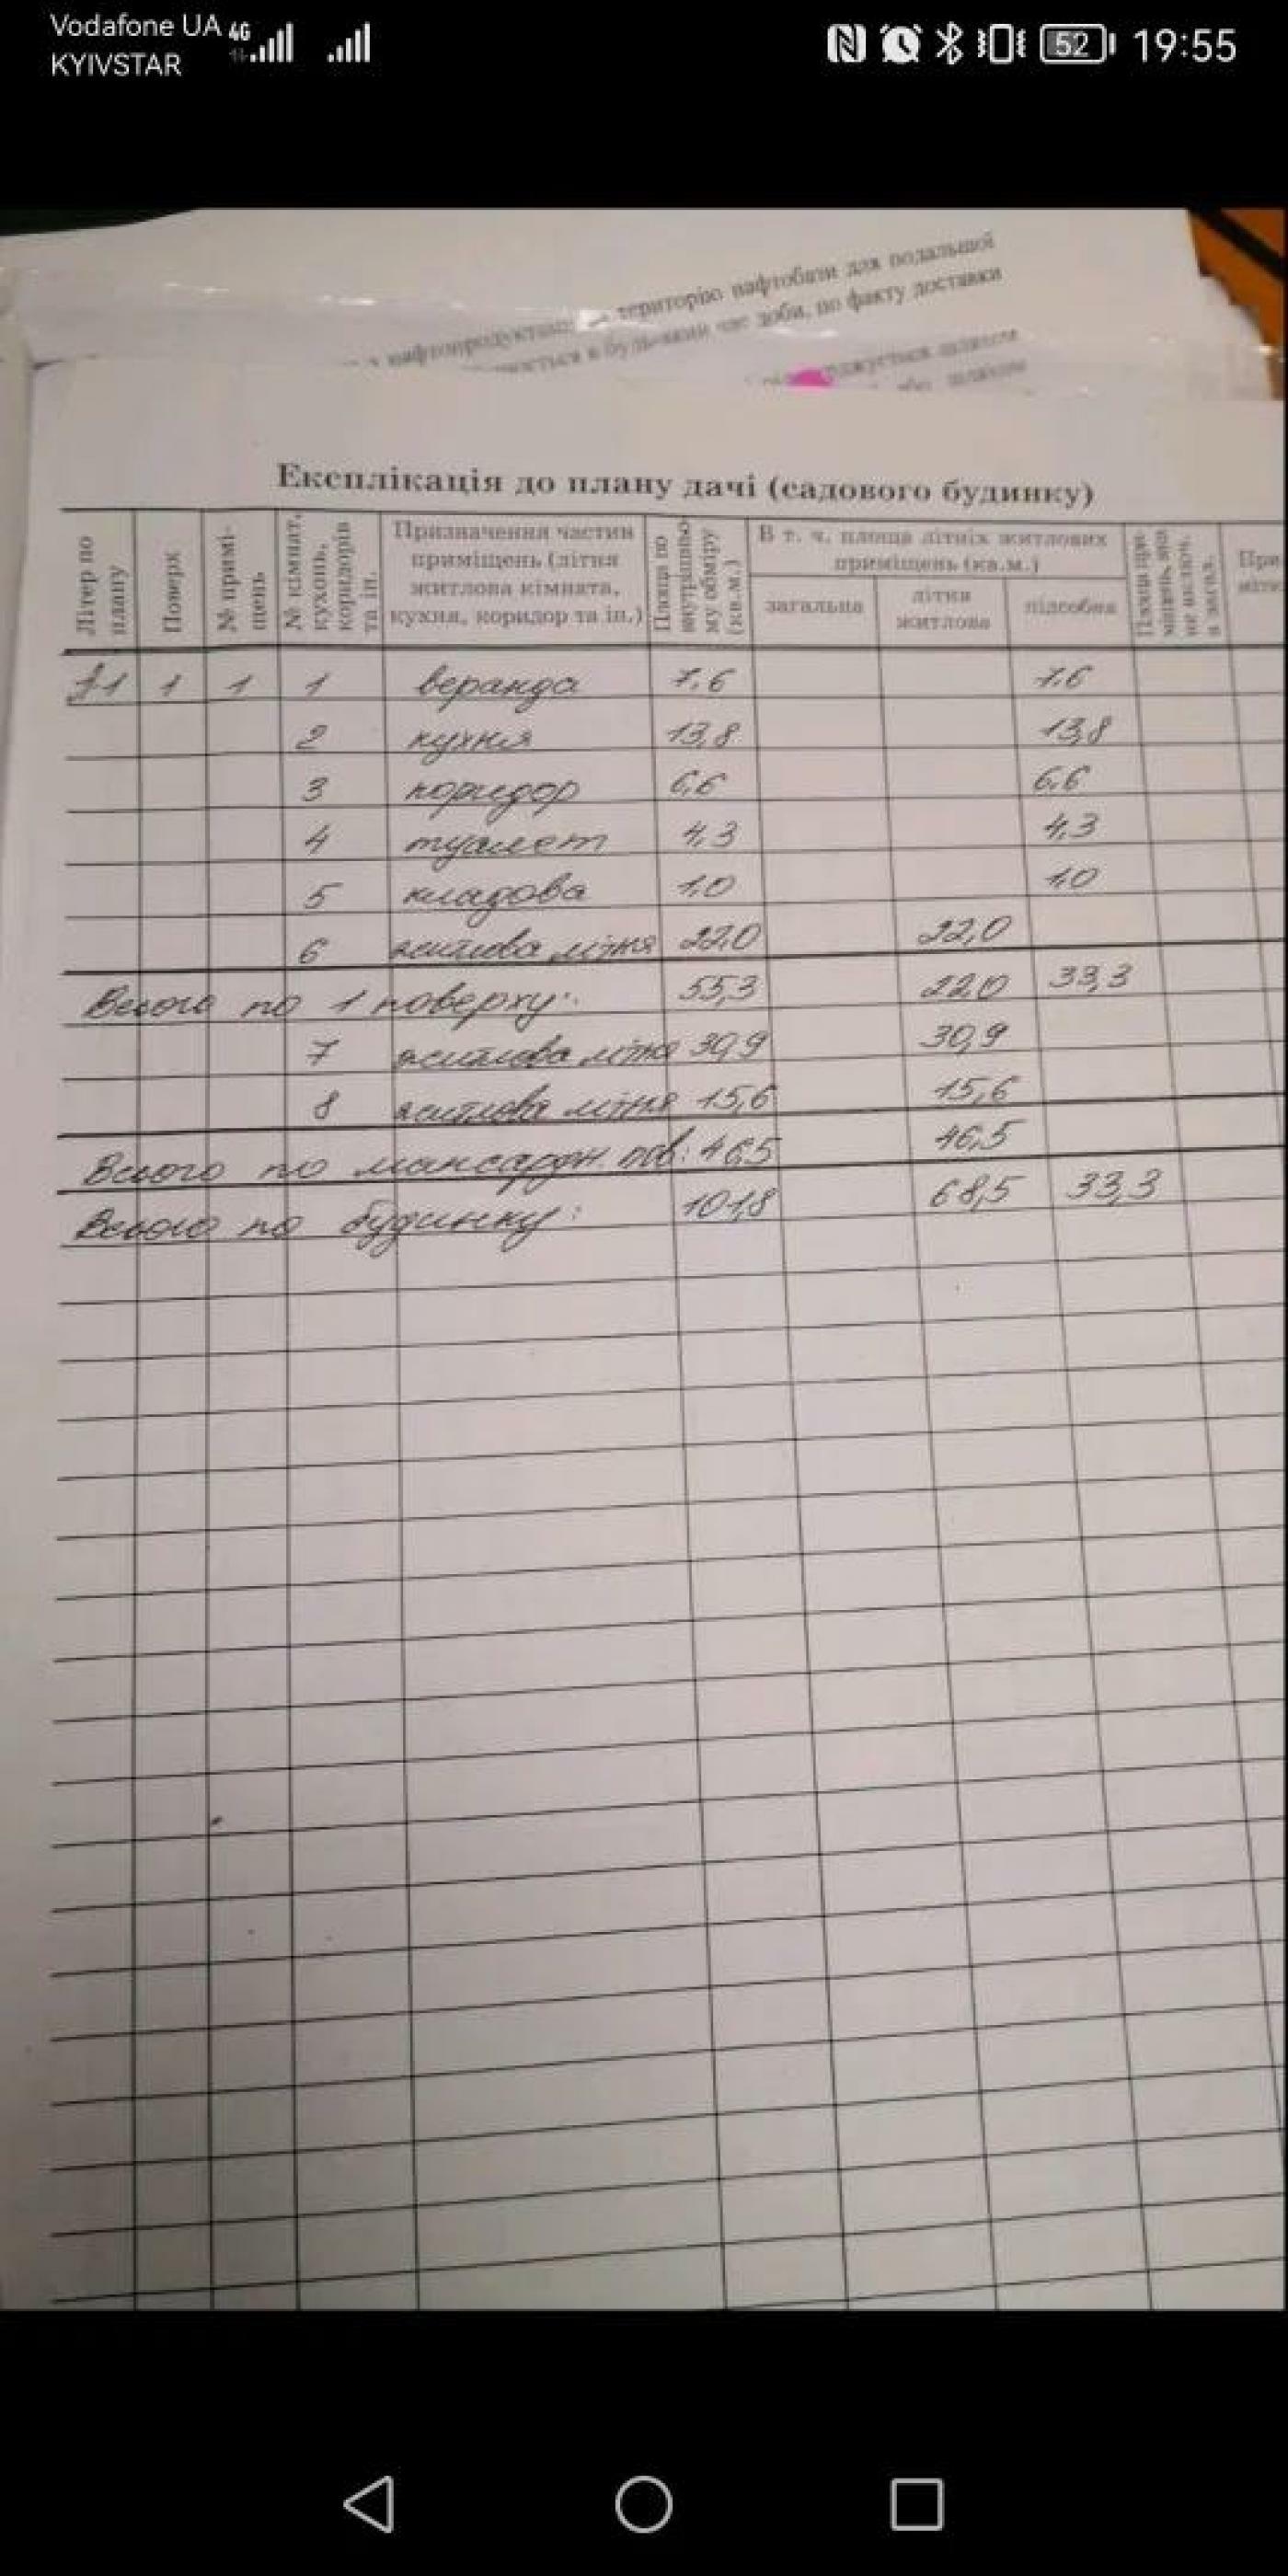 Vodafone UA 4G
KYIVSTAR
52 19:55
територію нафтобази для подальшої
в будь-який час доби, по факту доставки
шляхом
або шляхом
Експлікація до плану дачі (садового будинку)
Літер по плану
Поверх
№ примі-щень
№ кімнат, кухонь, коридорів та ін.
Призначення частин приміщень (літня житлова кімната, кухня, коридор та ін.)
Площа по внутрішньо-му обміру (кв.м.)
В т. ч. площа літніх житлових приміщень (кв.м.)
загальна
літня житлова
підсобна
Площа при-міщень, що не включ. в загал.
При
1 1 1 веранда 7,6 7,6
2 кухня 13,8 13,8
3 коридор 6,6 6,6
4 туалет 4,3 4,3
5 кладова 1,0 1,0
6 житлова літня 22,0 22,0
Всього по 1 поверху: 55,3 22,0 33,3
7 житлова літня 30,9 30,9
8 житлова літня 15,6 15,6
Всього по мансардн пов: 46,5 46,5
Всього по будинку: 101,8 68,5 33,3